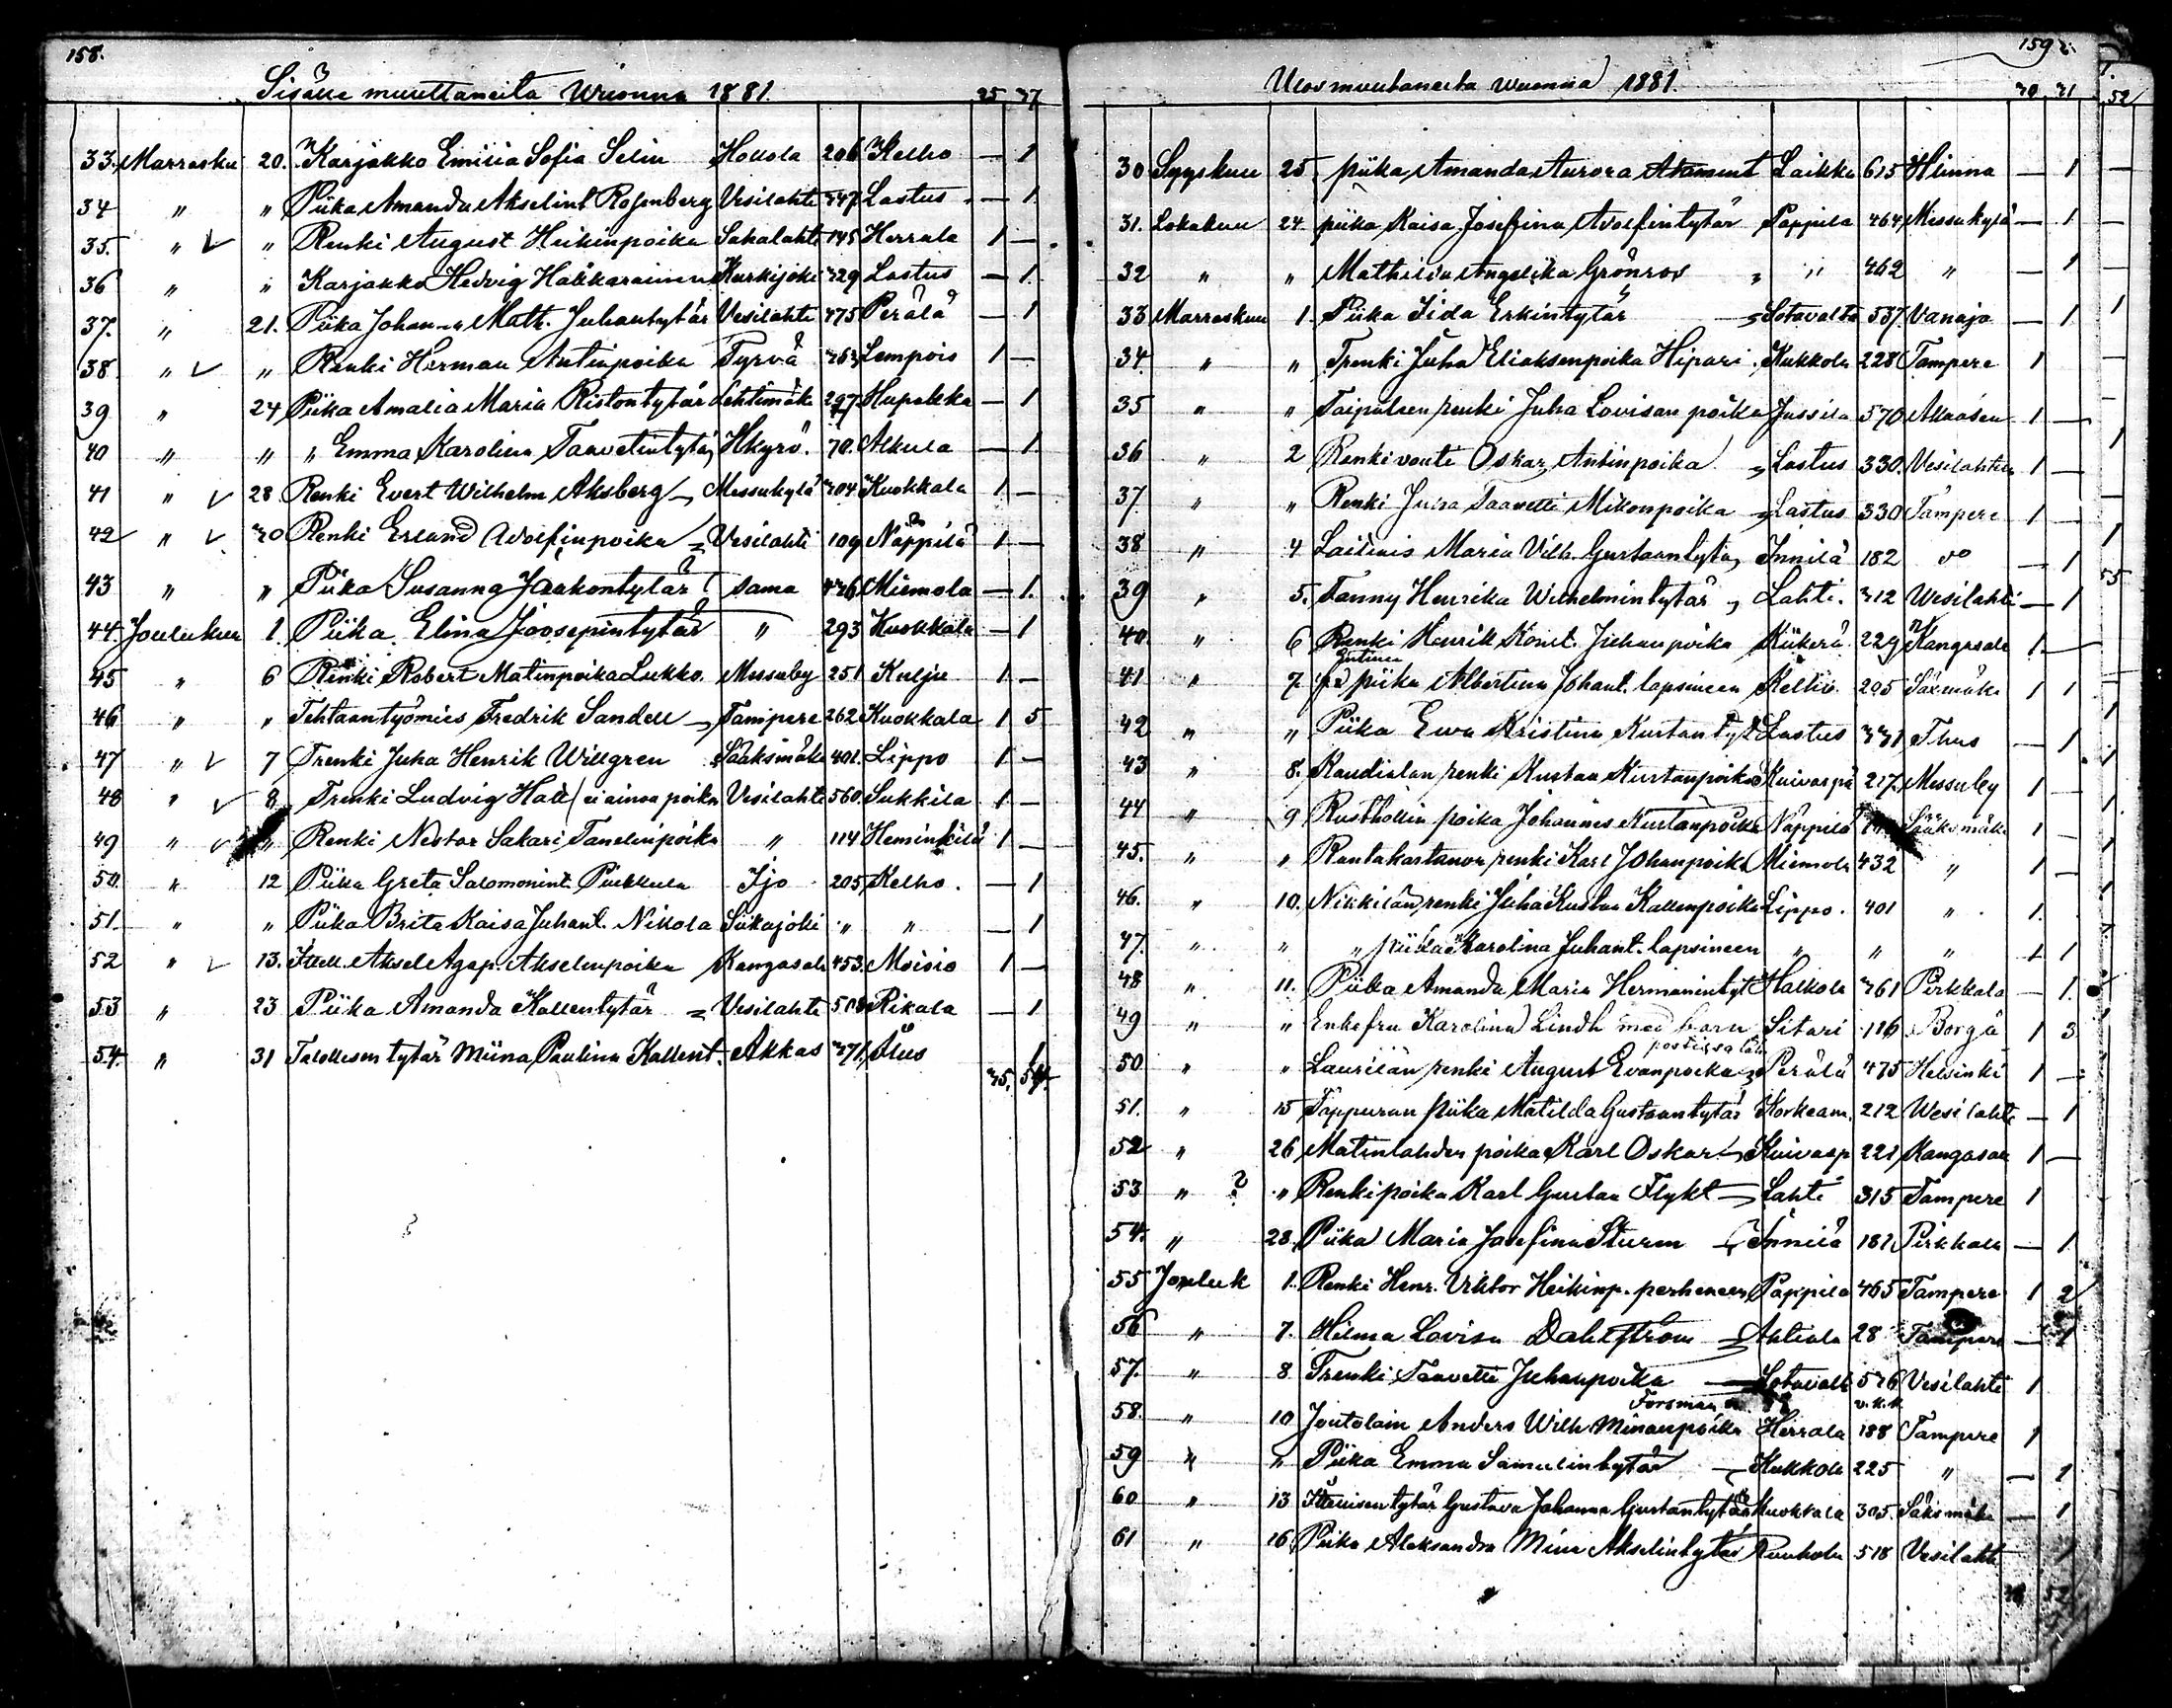 158.
Sisälle muuttaneita Wuonna 1881.
25 37
33. Marrasku 20. Karjakko Emilia Sofia Selin Hollola 206 Kelho — 1
34 " " Piika Amanda Akselint Rosenberg Vesilahti 347 Lastus — 1
35. " " Renki August Heikinpoika Sahalahti 145 Herrala 1 —
36 " " Karjakko Hedvig Hakkarainen Kurkijoki 329 Lastus — 1
37. " 21. Piika Johanna Math. Juhantytär Vesilahti 475 Perälä — 1
38. " " Renki Herman Antinpoika Tyrvä 363 Lempois 1 —
39 " 24 Piika Amalia Maria Ristontytär Lehtimäki 297 Hupakka — 1
40 " " " Emma Karolina Taavetintytär Hkyrö. 70. Alkula — 1
41 " 28 Renki Evert Wilhelm Aksberg Messukylä 304 Kuokkala 1 —
42 " 30 Renki Erland Adolfinpoika Vesilahti 109 Näppilä 1 —
43 " " Piika Susanna Jaakontytär sama 436 Miemola — 1
44. Joulukuu 1. Piika Elina Joosepintytär " 293 Kuokkala — 1
45 " 6 Renki Robert Matinpoika Lukko Messuby 251 Kulju 1 —
46 " " Tehtaantyömies Fredrik Sandell Tampere 262 Kuokkala 1 5
47 " 7 Trenki Juha Henrik Willgren Sääksmäki 401. Lippo 1 —
48 " 8 Trenki Ludvig Hall ei ainoa poika Vesilahti 560. Sukkila 1 —
49 " " Renki Nestor Sakari Tanelinpoika " 114 Heminkilä 1 —
50. " 12 Piika Greta Salomonint. Puikkula Ijo 205 Kelho. — 1
51. " " Piika Brita Kaisa Juhant. Nikola Siikajoki " " — 1
52 " 13. Itsell. Aksel Agap. Akselinpoika Kangasala 453. Moisio 1 —
53 " 23 Piika Amanda Kallentytär Vesilahti 508 Rikala — 1
54. " 31 Talollisen tytär Miina Paulina Kallent. Akkas 371 Ilus 1
35. 54.
159
Ulosmuuttaneita Wuonna 1881.
30 31
52
30 Syyskuu 25 piika Amanda Aurora Laikka 615 Hlinna — 1
31. Lokakuu 24 piika Kaisa Josefina Adolfintytär Pappila 464 Messukylä — 1
32 " " Mathilda Angelika Grönros " " 462 " — 1
33 Marraskuu 1. Piika Iida Erkintytär Sotavalta 537. Vanaja — 1
34. " " Trenki Juha Eliaksenpoika Hipari Kukkola 228 Tampere 1
35 " " Taipaleen renki Juha Lovisan poika Jussila 570 Akaasen 1 —
36 " 2 Renkivouti Oskar Antinpoika Lastus 330. Vesilahtin 1 —
37. " " Renki Juha Taavetti Mikonpoika Lastus 330 Tampere 1 —
38 " 4 Loisinais Maria Vilh. Gustaantytär Innilä 182 do — 1
55
39 " 5. Fanny Henrika Wilhelmintytär Lahti. 312 Wesilahti — 1
40. " 6 Renki Henrik Konst. Juhanpoika Kiikerä 229 Kangasala 1 —
41 " 7. piika Albertina Johant. lapsineen Kelho 205 Säxmäki 1 1
42 " " Piika Ewa Kristina Kustantyt Lastus 331 Thus — 1
43 " 8. Kandialan renki Kustaa Kustaanpoika Kuivaspä 217. Messuby 1 —
44 " 9 Rusthollin poika Johannes Kustaanpoika Näppilä Sääksmäki 1 —
45. " " Rantakartanon renki Karl Johanpoika Miemola 432 " 1 —
46. " 10. Nikkilän renki Juha Kustaa Kallenpoika Lippo. 401 " 1.
47. " " " piika Karolina Juhant. lapsineen " " " 1 1
48 " 11. Piika Amanda Maria Hermanintyt Halkola 361 Pirkkala — 1.
49 " " Enkefru Karolina Lindh med barn Sitari 116 Borgå 1 3
50 " " Laurilan renki August Evanpoika Perälä 475 Helsinki 1 —
51. " 15 Tappuran piika Matilda Gustaantytär Korkeam. 212 Wesilahti — 1
52 " 26 Matinlahden poika Karl Oskar Kuivasp 221 Kangasala 1 —
53 " ? " Renkipoika Karl Gustaa Flykt Lahti 315 Tampere 1
54. " 28. Piika Maria Josefina Sturm Innilä 181. Pirkkala — 1
55 Jouluk 1. Renki Henr. Viktor Heikinp. perheneen Pappila 465 Tampere 1 2
56 " 7. Hilma Lovisa Dahlström Ahtiala 28 Tampere — 1
57. " 8 Trenki Taavetti Juhanpoika Sotavalt 536 Vesilahti 1
Forsman v.k.k.
58. " 10 Joutolain Anders Wilh Minanpoika Herrala 188 Tampere 1
59 " " Piika Emma Samulintytär Kukkola 225 " — 1
60 " 13 Itsellisen tytär Gustava Johanna Gustantytär Kuokkala 305. Säksmäki — 1
61 " 16 Piika Aleksandra Mina Akselintytär Ruuhola 518 Vesilahti 1